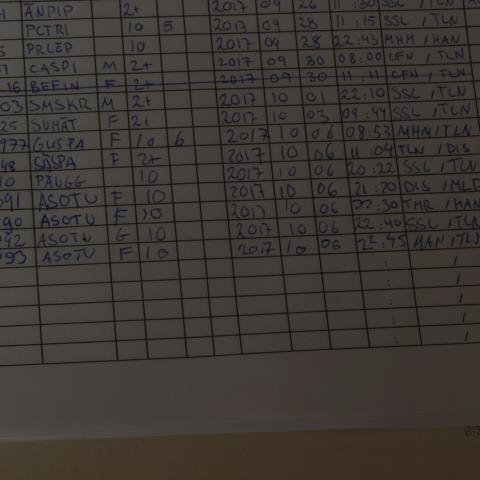 ÄNPIP 2+ 2017 09 26 11:30 SSL/TLN
PCTRI 10 5 2017 09 28 11:15 SSL/TLN
PRLCP 10 2017 09 28 22:43 MHM/HAN
CASPI M 2+ 2017 09 30 08:00 CFN/TLN
16 BEFIN F 2+ 2017 09 30 11:11 CFN/TLN
03 SMSKR M 2+ 2017 10 01 22:10 SSL/TLN
25 SUHÄT F 2+ 2017 10 03 09:44 SSL/TLN
977 GUSPA F 10 6 2017 10 06 08:53 MHM/TLN
48 SÄSPA F 2+ 2017 10 06 11:04 TLN/DIS
10 PAUGG 10 2017 10 06 20:22 SSL/TLN
091 ASOTU F 10 2017 10 06 21:20 DIS/MLD
090 ASOTU F 10 2017 10 06 22:30 TMR/HAN
092 ASOTU G 10 2017 10 06 22:40 SSL/TLN
093 ASOTU F 10 2017 10 06 22:45 HAN/TLN
: /
: /
: /
: /
: /